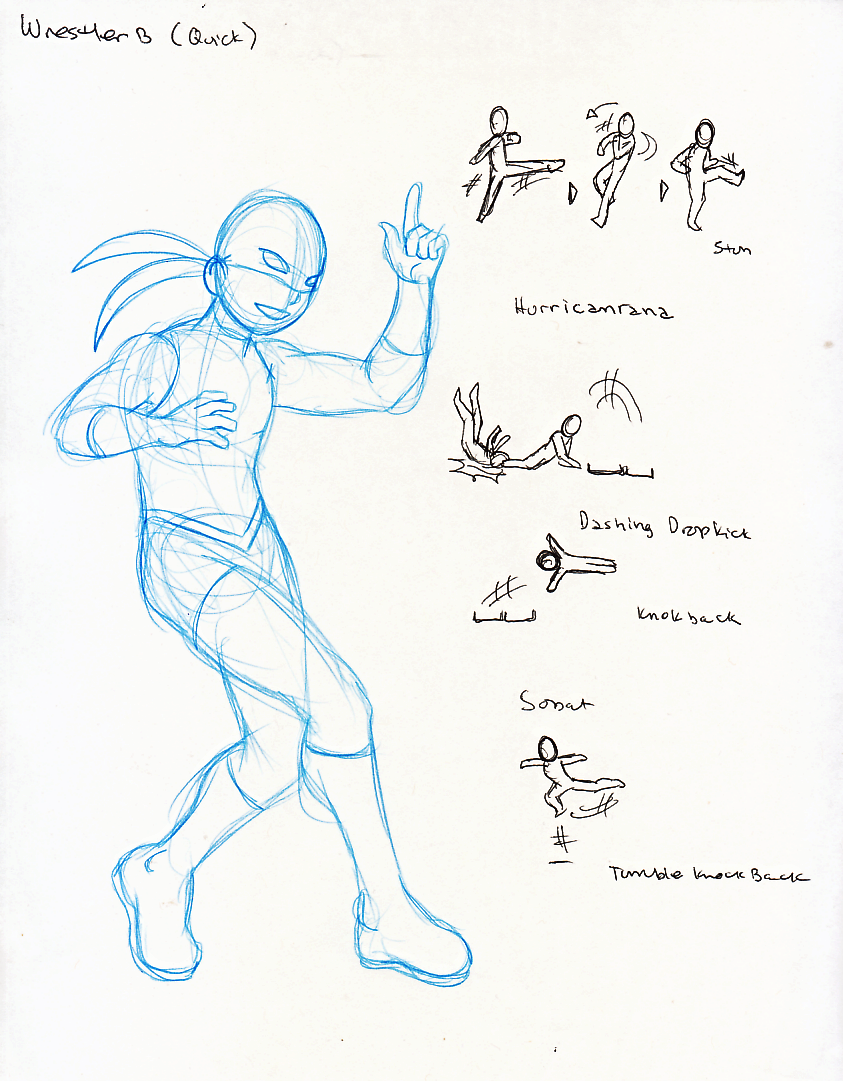 Wrestler B (Quick)
Stun
Hurricanrana
Dashing Dropkick
Knokback
Sobat
Tumble Knock Back